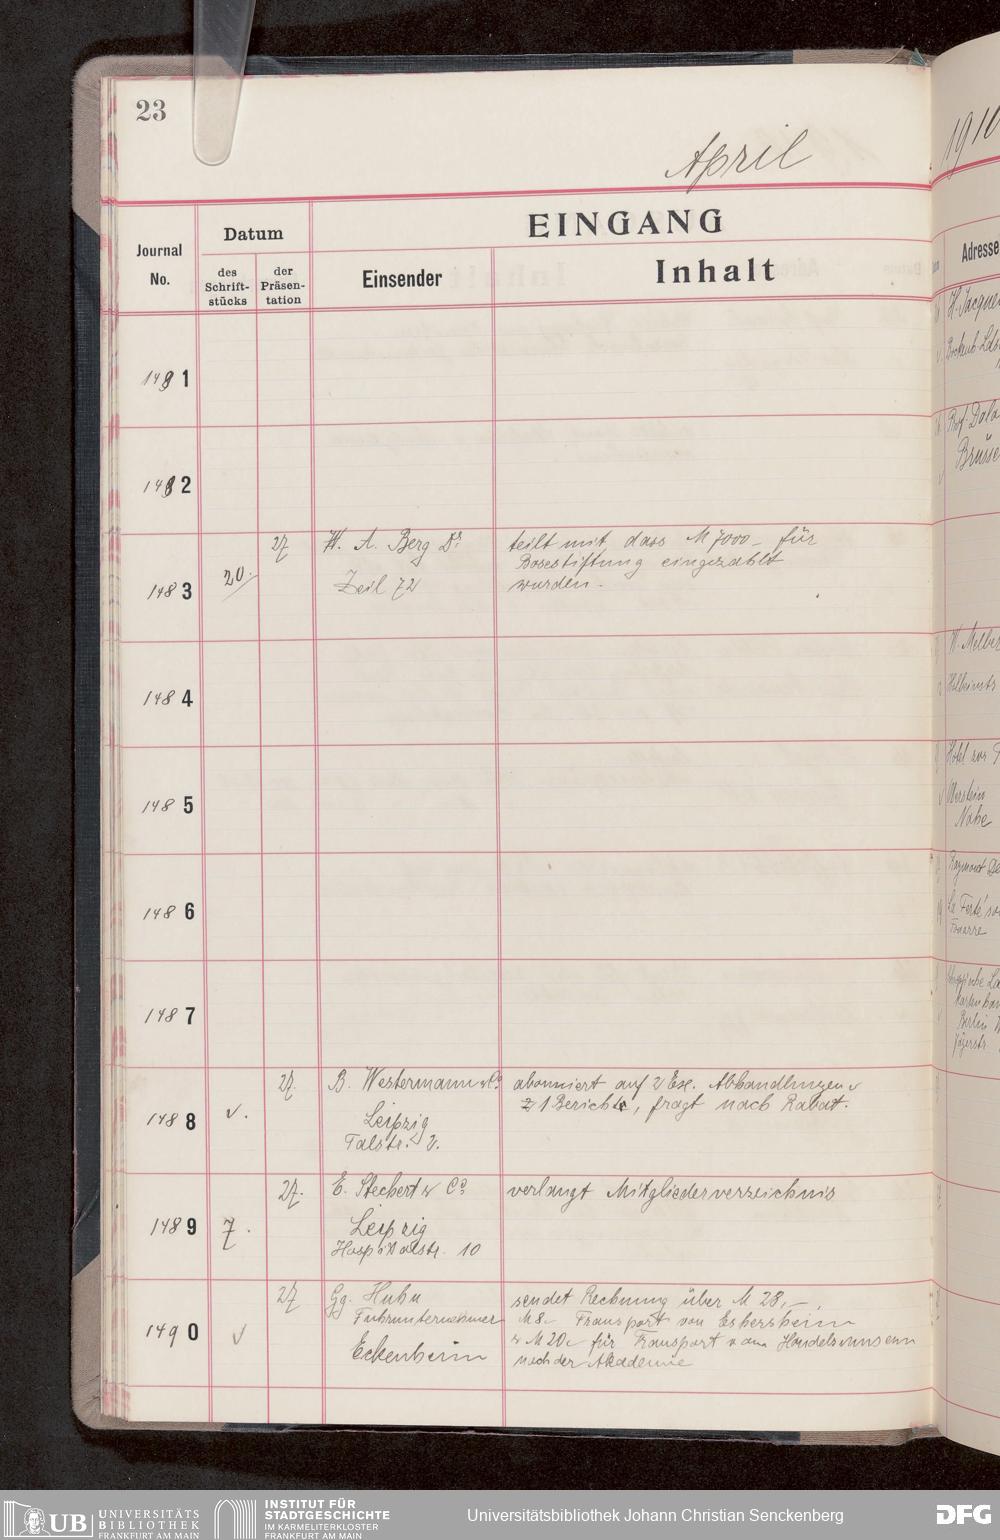 23
April
1910
EINGANG
Journal No.
Datum
des Schrift-stücks
der Präsen-tation
Einsender
Inhalt
Adresse
1481
1482
1483
20.
27
W. A. Berg Dr.
Zeil 72
teilt mit dass M 7000 - für
Bosestiftung eingezahlt
wurden -
1484
1485
1486
1487
1488
v.
27.
B. Westermann & Co
Leipzig
Talstr. 2.
abonniert auf 2 Ex. Abhandlungen u
1 Berichte, fragt nach Rabat.
1489
7.
27.
E. Stechert & Co
Leipzig
Hospitalstr. 10
verlangt Mitgliederverzeichnis
1490
27
Gg. Huhn
Fuhrunternehmer
Eckenheim
sendet Rechnung über M 28,-
M 8.- Transport von Eskersheim
u M 20.- für Transport v dem Handelsmuseum
nach der Akademie
H. Jacque
Prof. Dolo
Brüsse
W. Melber
Hotel zur
Oberstein
Nahe
Raymond De
La Ferté sou
Berlin
Jägerstr.
UB UNIVERSITÄTS
BIBLIOTHEK
FRANKFURT AM MAIN
INSTITUT FÜR
STADTGESCHICHTE
IM KARMELITERKLOSTER
FRANKFURT AM MAIN
Universitätsbibliothek Johann Christian Senckenberg
DFG